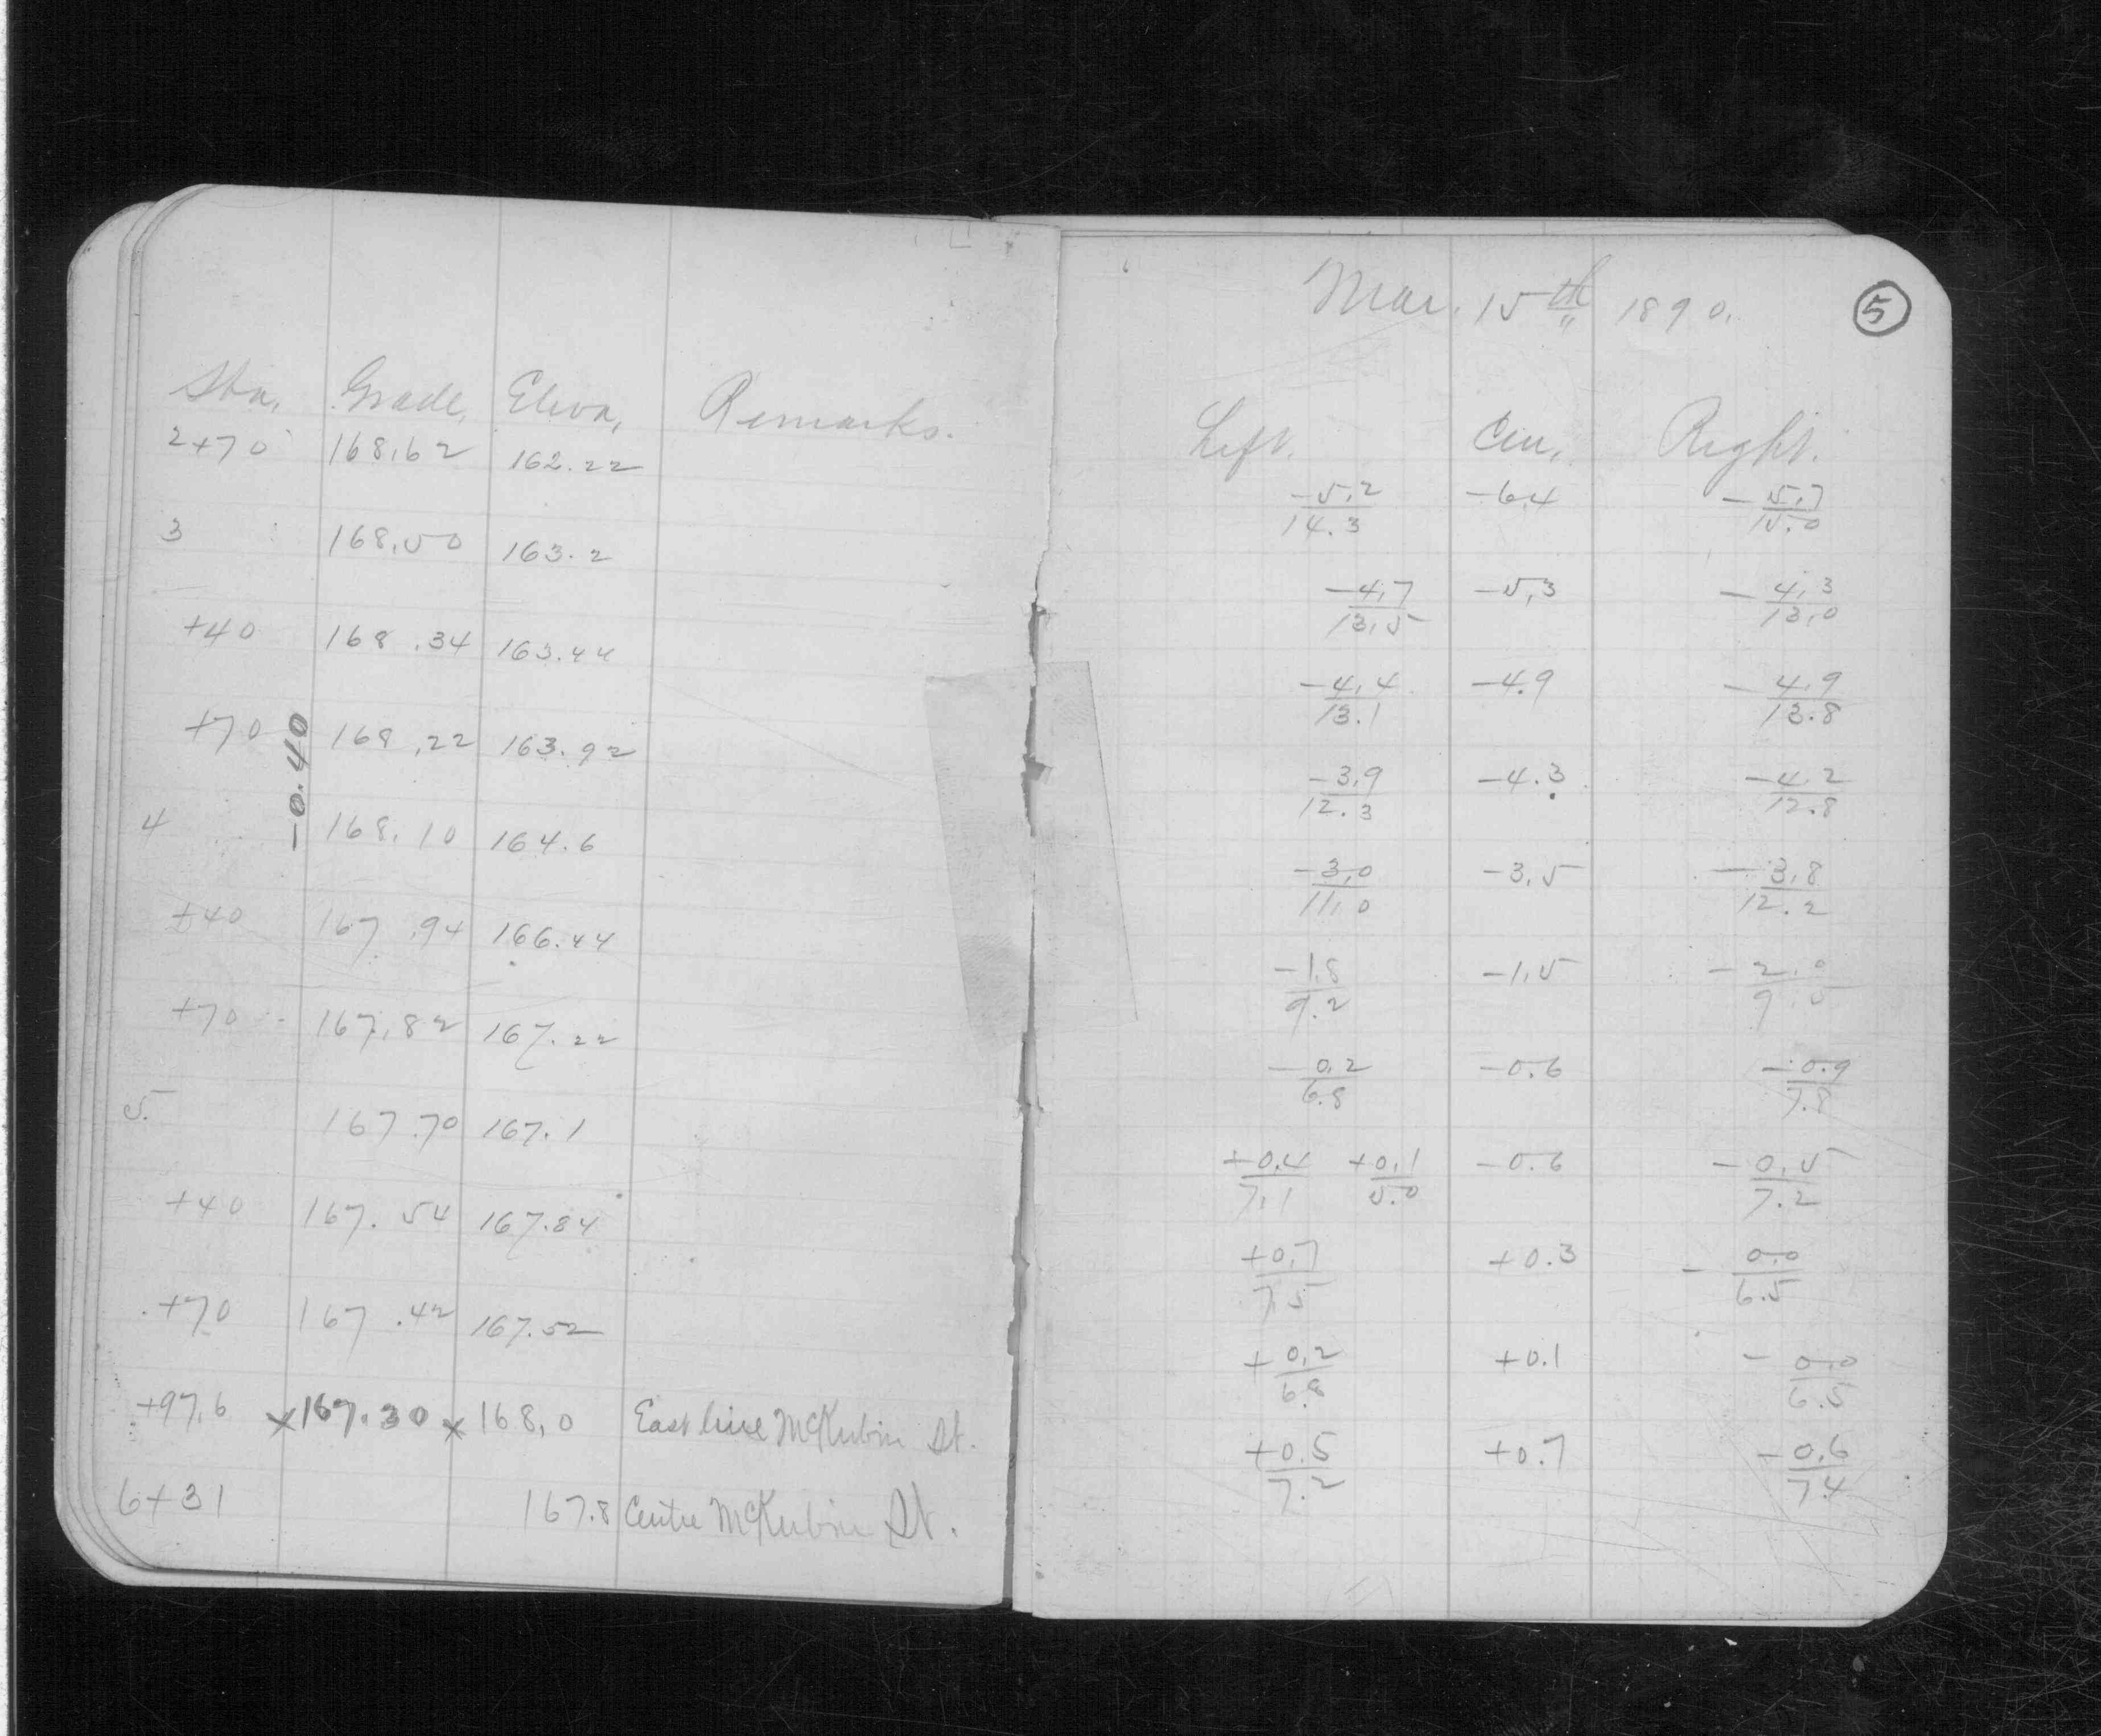 Mar. 15th 1890.
5
Sta. Grade, Eleva, Remarks.
Left. Cen. Right.
2+70 168.62 162.22
-5.2/14.3 -6.4 -5.7/15.0
3 168.50 163.2
-4.7/13.5 -5.3 -4.3/13.0
+40 168.34 163.44
-4.4/13.1 -4.9 -4.9/13.8
+70 168.22 163.92
-3.9/12.3 -4.3 -4.2/12.8
-0.40
4 168.10 164.6
-3.0/11.0 -3.5 -3.8/12.2
+40 167.94 166.44
-1.8/9.2 -1.5 -2.0/9.5
+70 167.82 167.22
-0.2/6.8 -0.6 -0.9/7.8
5 167.70 167.1
+0.4/7.1 +0.1/5.0 -0.6 -0.5/7.2
+40 167.54 167.84
+0.7/7.5 +0.3 -0.0/6.5
+70 167.42 167.52
+0.2/6.8 +0.1 -0.0/6.5
+97.6 x167.30 x168.0 East line McKubin St.
+0.5/7.2 +0.7 +0.6/7.4
6+31 167.8 Centre McKubin St.